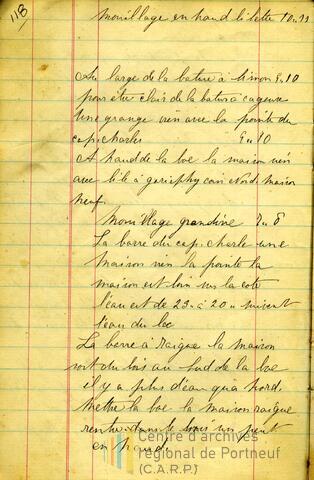 118
mouillage en haud lilette 10.11
Au large de la bature à simon 9.10
pour être clair de la bature a cageux
Une grange vien avec la pointe du
cap charles 9.10
A haud de la boe la maison vien
avec lile à coin Nord maison
neuf
Mouillage grondine 7.8
La barre du cap charle une
maison vien la pointe la
maison est loin sur la cote
l'eau est de 23 à 20 suivent
l'eau du lac
La barre à la maison
sort du bois au sud de la boe
il y a plus d'eau qua nord
mettre la boe la maison
rentre dans le bois un peut
en haud
Centre d'archives
régional de Portneuf
(C.A.R.P.)